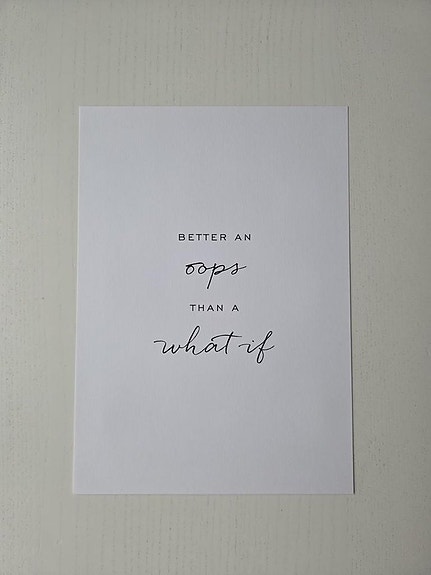 BETTER AN
oops
THAN A
what if